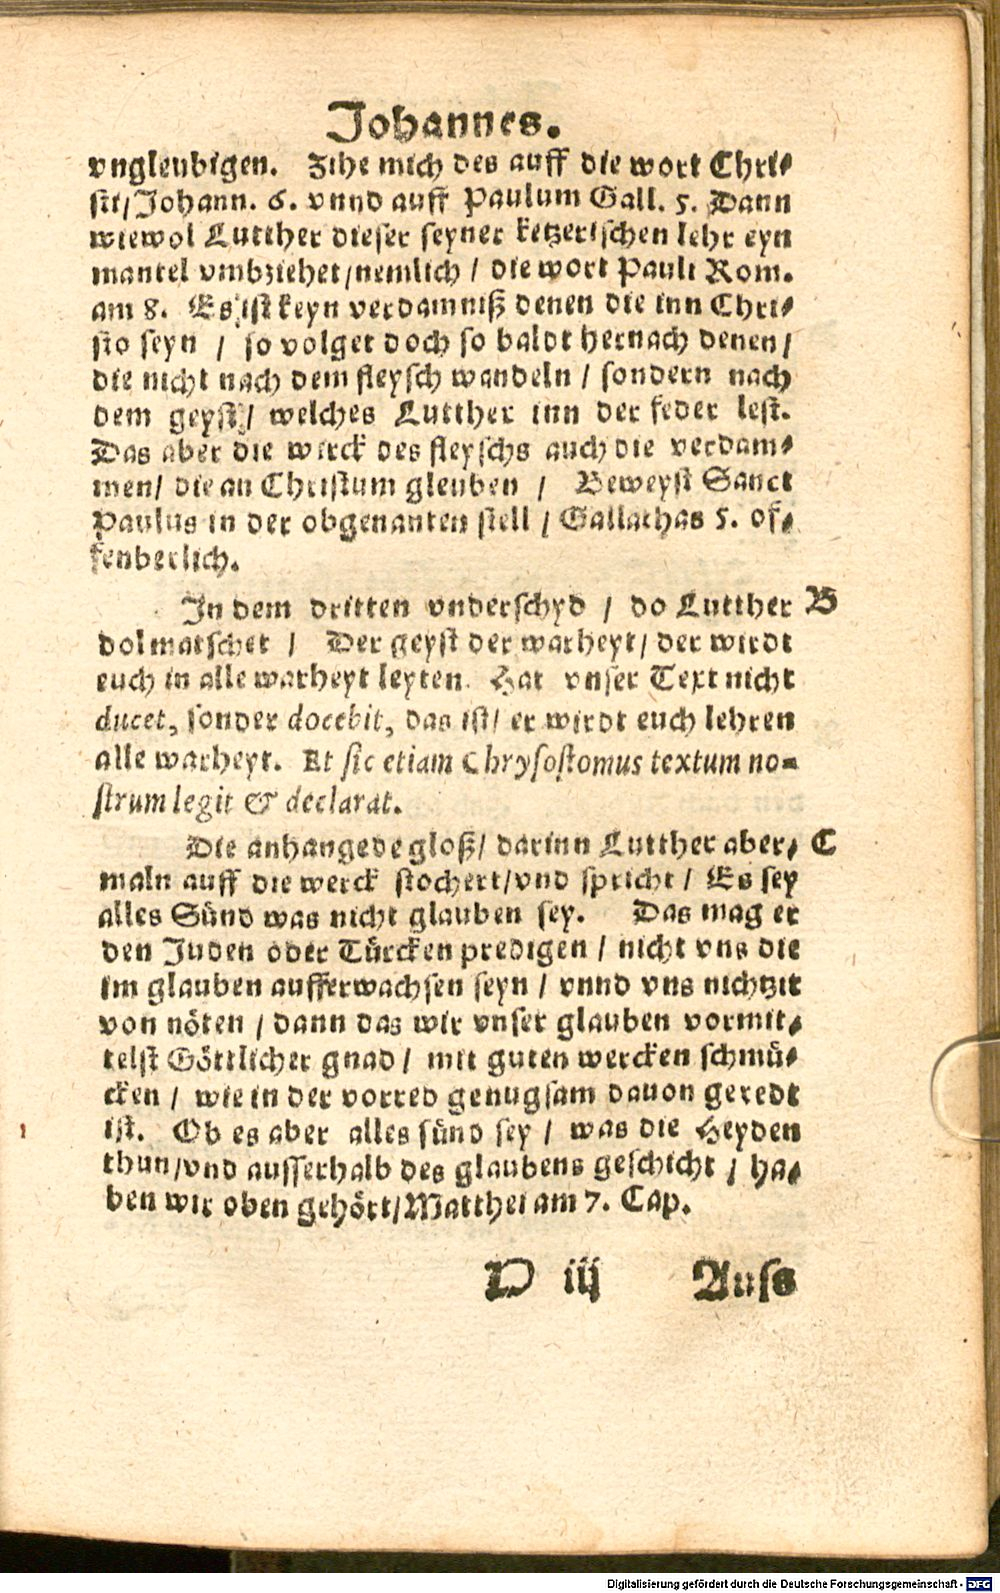 Johannes.
vngleubigen. Zihe mich des auff die wort Chri⸗
sti/Johann. 6. vnnd auff Paulum Gall. 5. Dann
wiewol Lutther dieser seyner ketzerischen lehr eyn
mantel vmbziehet/nemlich / die wort Pauli Rom.
am 8. Es ist keyn verdamniß denen die inn Chri⸗
sto seyn / so volget doch so baldt hernach denen/
die nicht nach dem fleysch wandeln / sondern nach
dem geyst/ welches Lutther inn der feder lest.
Das aber die wirck des fleyschs auch die verdam⸗
men/ die an Christum gleuben / Beweyst Sanct
Paulus in der obgenanten stell / Gallathas 5. of⸗
fenberlich.
In dem dritten vnderschyd / do Lutther B
dolmatschet / Der geyst der warheyt/ der wirdt
euch in alle warheyt leyten. Hat vnser Text nicht
ducet, sonder docebit, das ist/ er wirdt euch lehren
alle warheyt. Et sic etiam Chrysostomus textum no-
strum legit & declarat.
Die anhangede gloß/ darinn Lutther aber⸗ C
maln auff die werck stochert/vnd spricht / Es sey
alles Sünd was nicht glauben sey. Das mag er
den Juden oder Türcken predigen / nicht vns die
im glauben aufferwachsen seyn / vnnd vns nichtzit
von nöten / dann das wir vnser glauben vormit⸗
telst Göttlicher gnad / mit guten wercken schmü⸗
cken / wie in der vorred genugsam dauon geredt
ist. Ob es aber alles sünd sey / was die Heyden
thun/vnd ausserhalb des glaubens geschicht / ha⸗
ben wir oben gehört/Matthei am 7. Cap.
D iij Auss
Digitalisierung gefördert durch die Deutsche Forschungsgemeinschaft - DFG